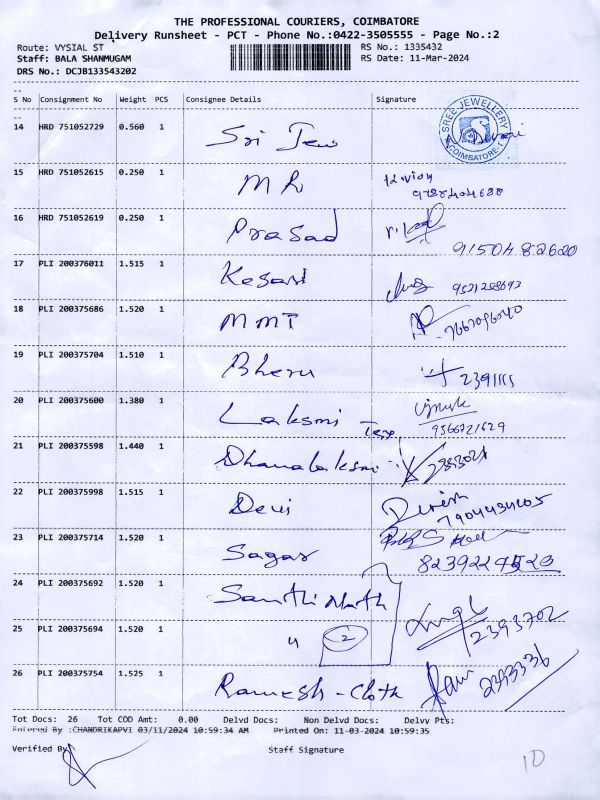 THE PROFESSIONAL COURIERS, COIMBATORE
Delivery Runsheet - PCT - Phone No.:0422-3505555 - Page No.:2
Route: VYSIAL ST RS No.: 1335432
Staff: BALA SHANMUGAM RS Date: 11-Mar-2024
DRS No.: DCJB133543202
S No Consignment No Weight PCS Consignee Details Signature
14 HRD 751052729 0.560 1 Sri Jew SREE JEWELLERY COIMBATORE-1
15 HRD 751052615 0.250 1 M R
16 HRD 751052619 0.250 1 Prasad 9150482620
17 PLI 200376011 1.515 1 Kesari
18 PLI 200375686 1.520 1 MMT
19 PLI 200375704 1.510 1 Bheru 2391115
20 PLI 200375600 1.380 1 Laksmi Tex 9566721629
21 PLI 200375598 1.440 1 Dhanalaksmi
22 PLI 200375998 1.515 1 Devi
23 PLI 200375714 1.520 1 Sagar
24 PLI 200375692 1.520 1 Santhi Nath
25 PLI 200375694 1.520 1 4 2 2393702
26 PLI 200375754 1.525 1 Ramesh - Cloth Ram 2393336
Tot Docs: 26 Tot COD Amt: 0.00 Delvd Docs: Non Delvd Docs: Delvy Pts:
Entered By :CHANDRIKAPVI 03/11/2024 10:59:34 AM Printed On: 11-03-2024 10:59:35
Verified By Staff Signature
10